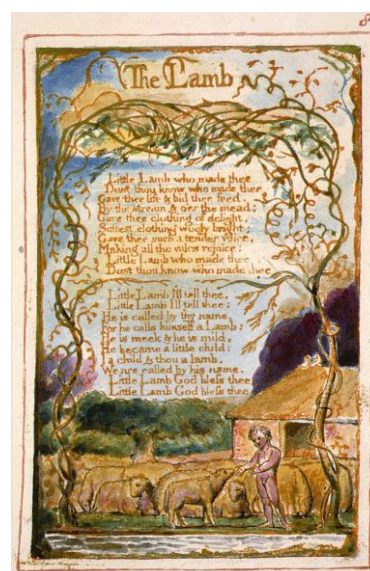 8
The Lamb
Little Lamb who made thee
Dost thou know who made thee
Gave thee life & bid thee feed.
By the stream & o'er the mead;
Gave thee clothing of delight,
Softest clothing wooly bright;
Gave thee such a tender voice,
Making all the vales rejoice:
Little Lamb who made thee
Dost thou know who made thee
Little Lamb I'll tell thee,
Little Lamb I'll tell thee;
He is called by thy name,
For he calls himself a Lamb:
He is meek & he is mild,
He became a little child:
I a child & thou a lamb,
We are called by his name.
Little Lamb God bless thee
Little Lamb God bless thee